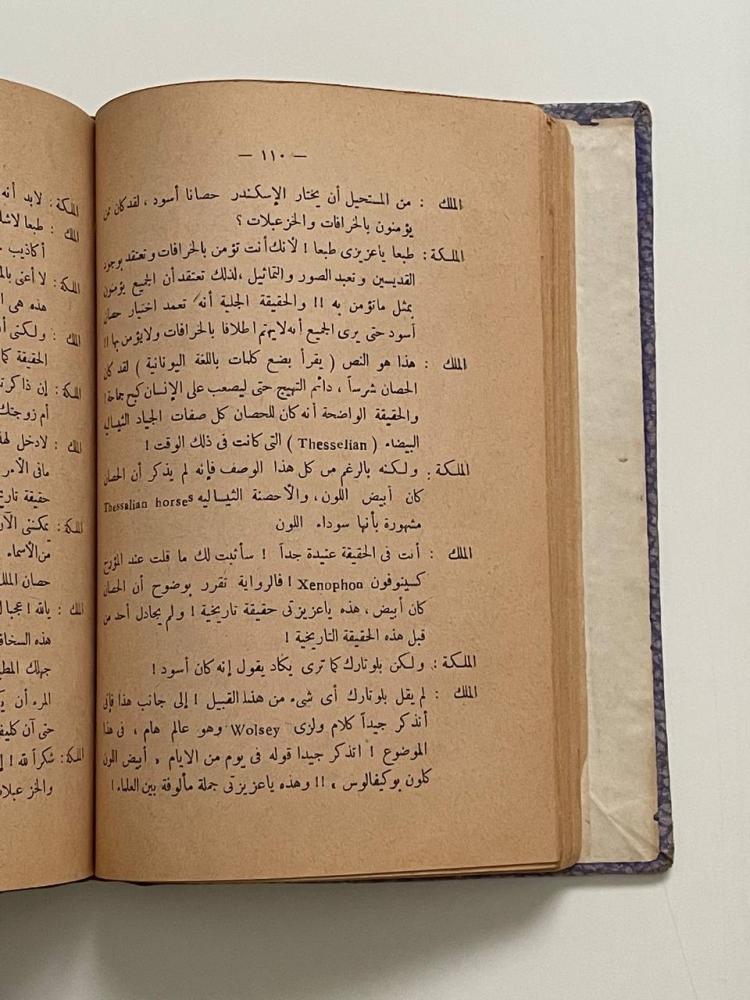 — ١١٠ —
الملك : من المستحيل أن يختار الإسكندر حصانا أسود ، لقد كان ممن
يؤمنون بالخرافات والخزعبلات ؟
الملكة : طبعا ياعزيزى طبعا ! لأنك أنت تؤمن بالخرافات وتعتقد بوجود
القديسين وتعبد الصور والتماثيل ،لذلك تعتقد أن الجميع يؤمنون
بمثل ماتؤمن به !! والحقيقة الجلية أنه تعمد اختيار حصان
أسود حتى يرى الجميع أنه لايهتم اطلاقا بالخرافات ولايؤمن بها !!
الملك : هذا هو النص ( يقرأ بضع كلمات باللغة اليونانية ) لقد كان
الحصان شرساً ، دائم التهيج حتى ليصعب على الإنسان كبح جماحه !
والحقيقة الواضحة أنه كان للحصان كل صفات الجياد الثيساليه
البيضاء ( Thesselian ) التى كانت فى ذلك الوقت !
الملكة : ولكنه بالرغم من كل هذا الوصف فإنه لم يذكر أن الحصان
كان أبيض اللون ، والأحصنة الثيساليه Thessalian horses
مشهورة بأنها سوداء اللون
الملك : أنت فى الحقيقة عنيدة جداً ! سأثبت لك ما قلت عند المؤرخ
كسينوفون Xenophon ! فالرواية تقرر بوضوح أن الحصان
كان أبيض ، هذه ياعزيزتى حقيقة تاريخية ! ولم يجادل أحد من
قبل هذه الحقيقة التاريخية !
الملكة : ولكن بلوتارك كما ترى يكاد يقول إنه كان أسود !
الملك : لم يقل بلوتارك أى شىء من هذا القبيل ! إلى جانب هذا فإنى
أتذكر جيداً كلام ولزى Wolsey وهو عالم هام ، فى هذا
الموضوع ! اتذكر جيدا قوله فى يوم من الايام ، أبيض اللون
كلون بوكيفالوس ، !! وهذه ياعزيزتى جملة مألوفة بين العلماء !
الملكة : لابد أنه
الملك : طبعا لاشك
أكاذيب
الملكة : لا أعنى بالم
هذه هى ا
الملك : ولكنى أ
الحقيقة كا
الملكة : إن ذاكرتـ
أم زوجتك
الملك : لادخل لهذ
مافى الأمر
حقيقة تاريخ
الملكة : يمكننى الآن
من الأسماء
حصان الملك
الملك : يالله ! عجبا ل
هذه السخافـ
جهلك المطبـ
المرء أن
حتى آن كليفـ
الملكة : شكراً لله ! إ
والخزعبلا